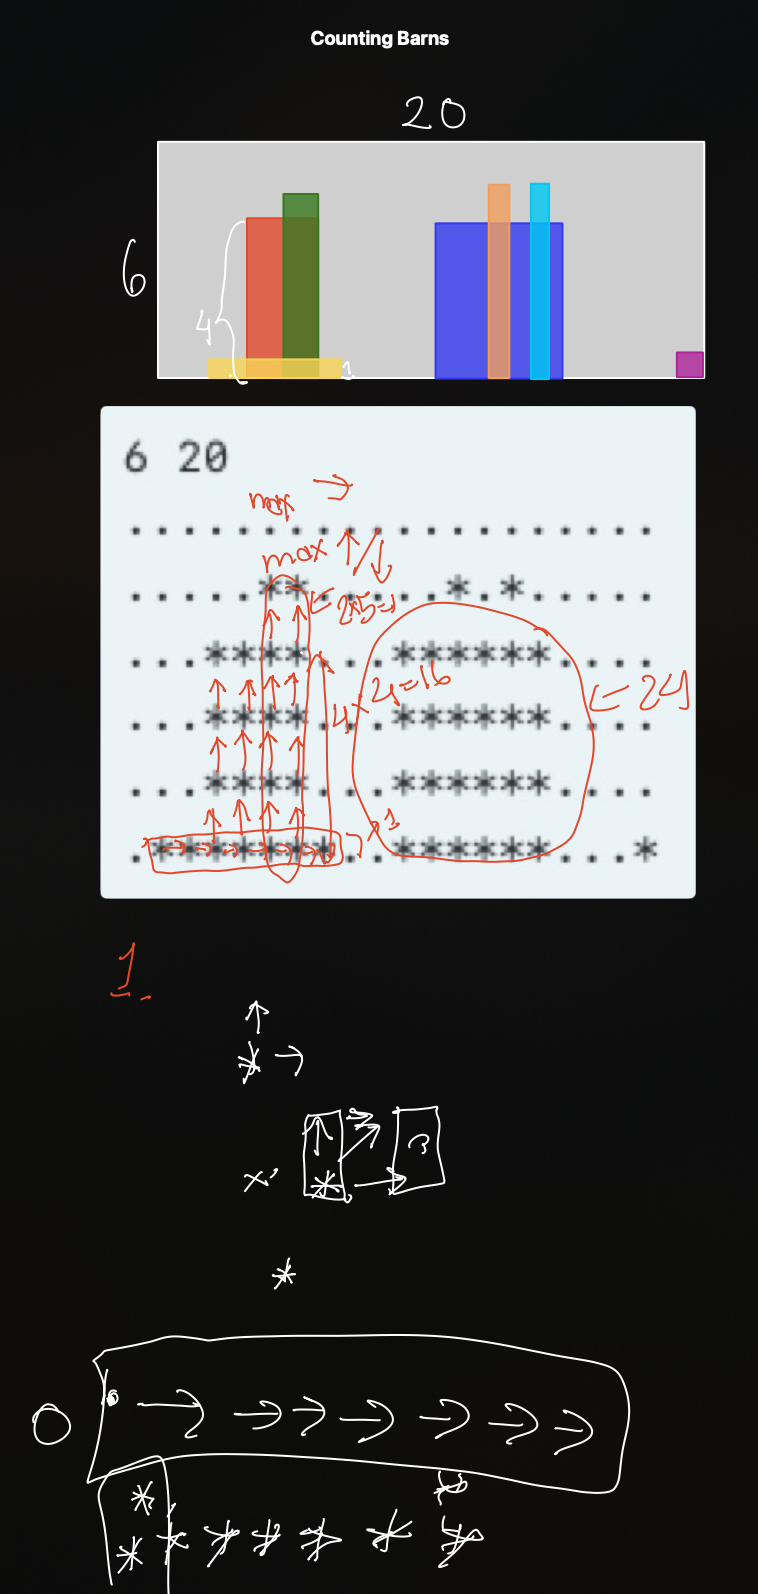 Counting Barns
20
6
4
1
6 20
max
....................
max
.....**.....*.*.....
2x5=
...****...******....
4x4=16
24
...****...******....
...****...******....
.*******..******...*
1
*
*
*
0
*
* * * * * * *